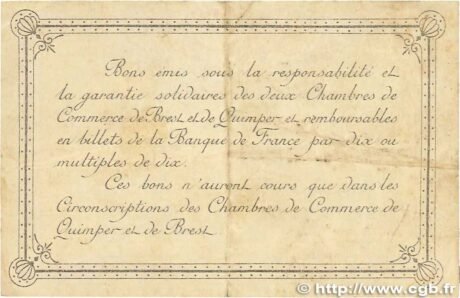 Bons émis sous la responsabilité et
la garantie solidaires des deux Chambres de
Commerce de Brest et de Quimper et remboursables
en billets de la Banque de France par dix ou
multiples de dix.
Ces bons n'auront cours que dans les
Circonscriptions des Chambres de Commerce de
Quimper et de Brest.
© http://www.cgb.fr